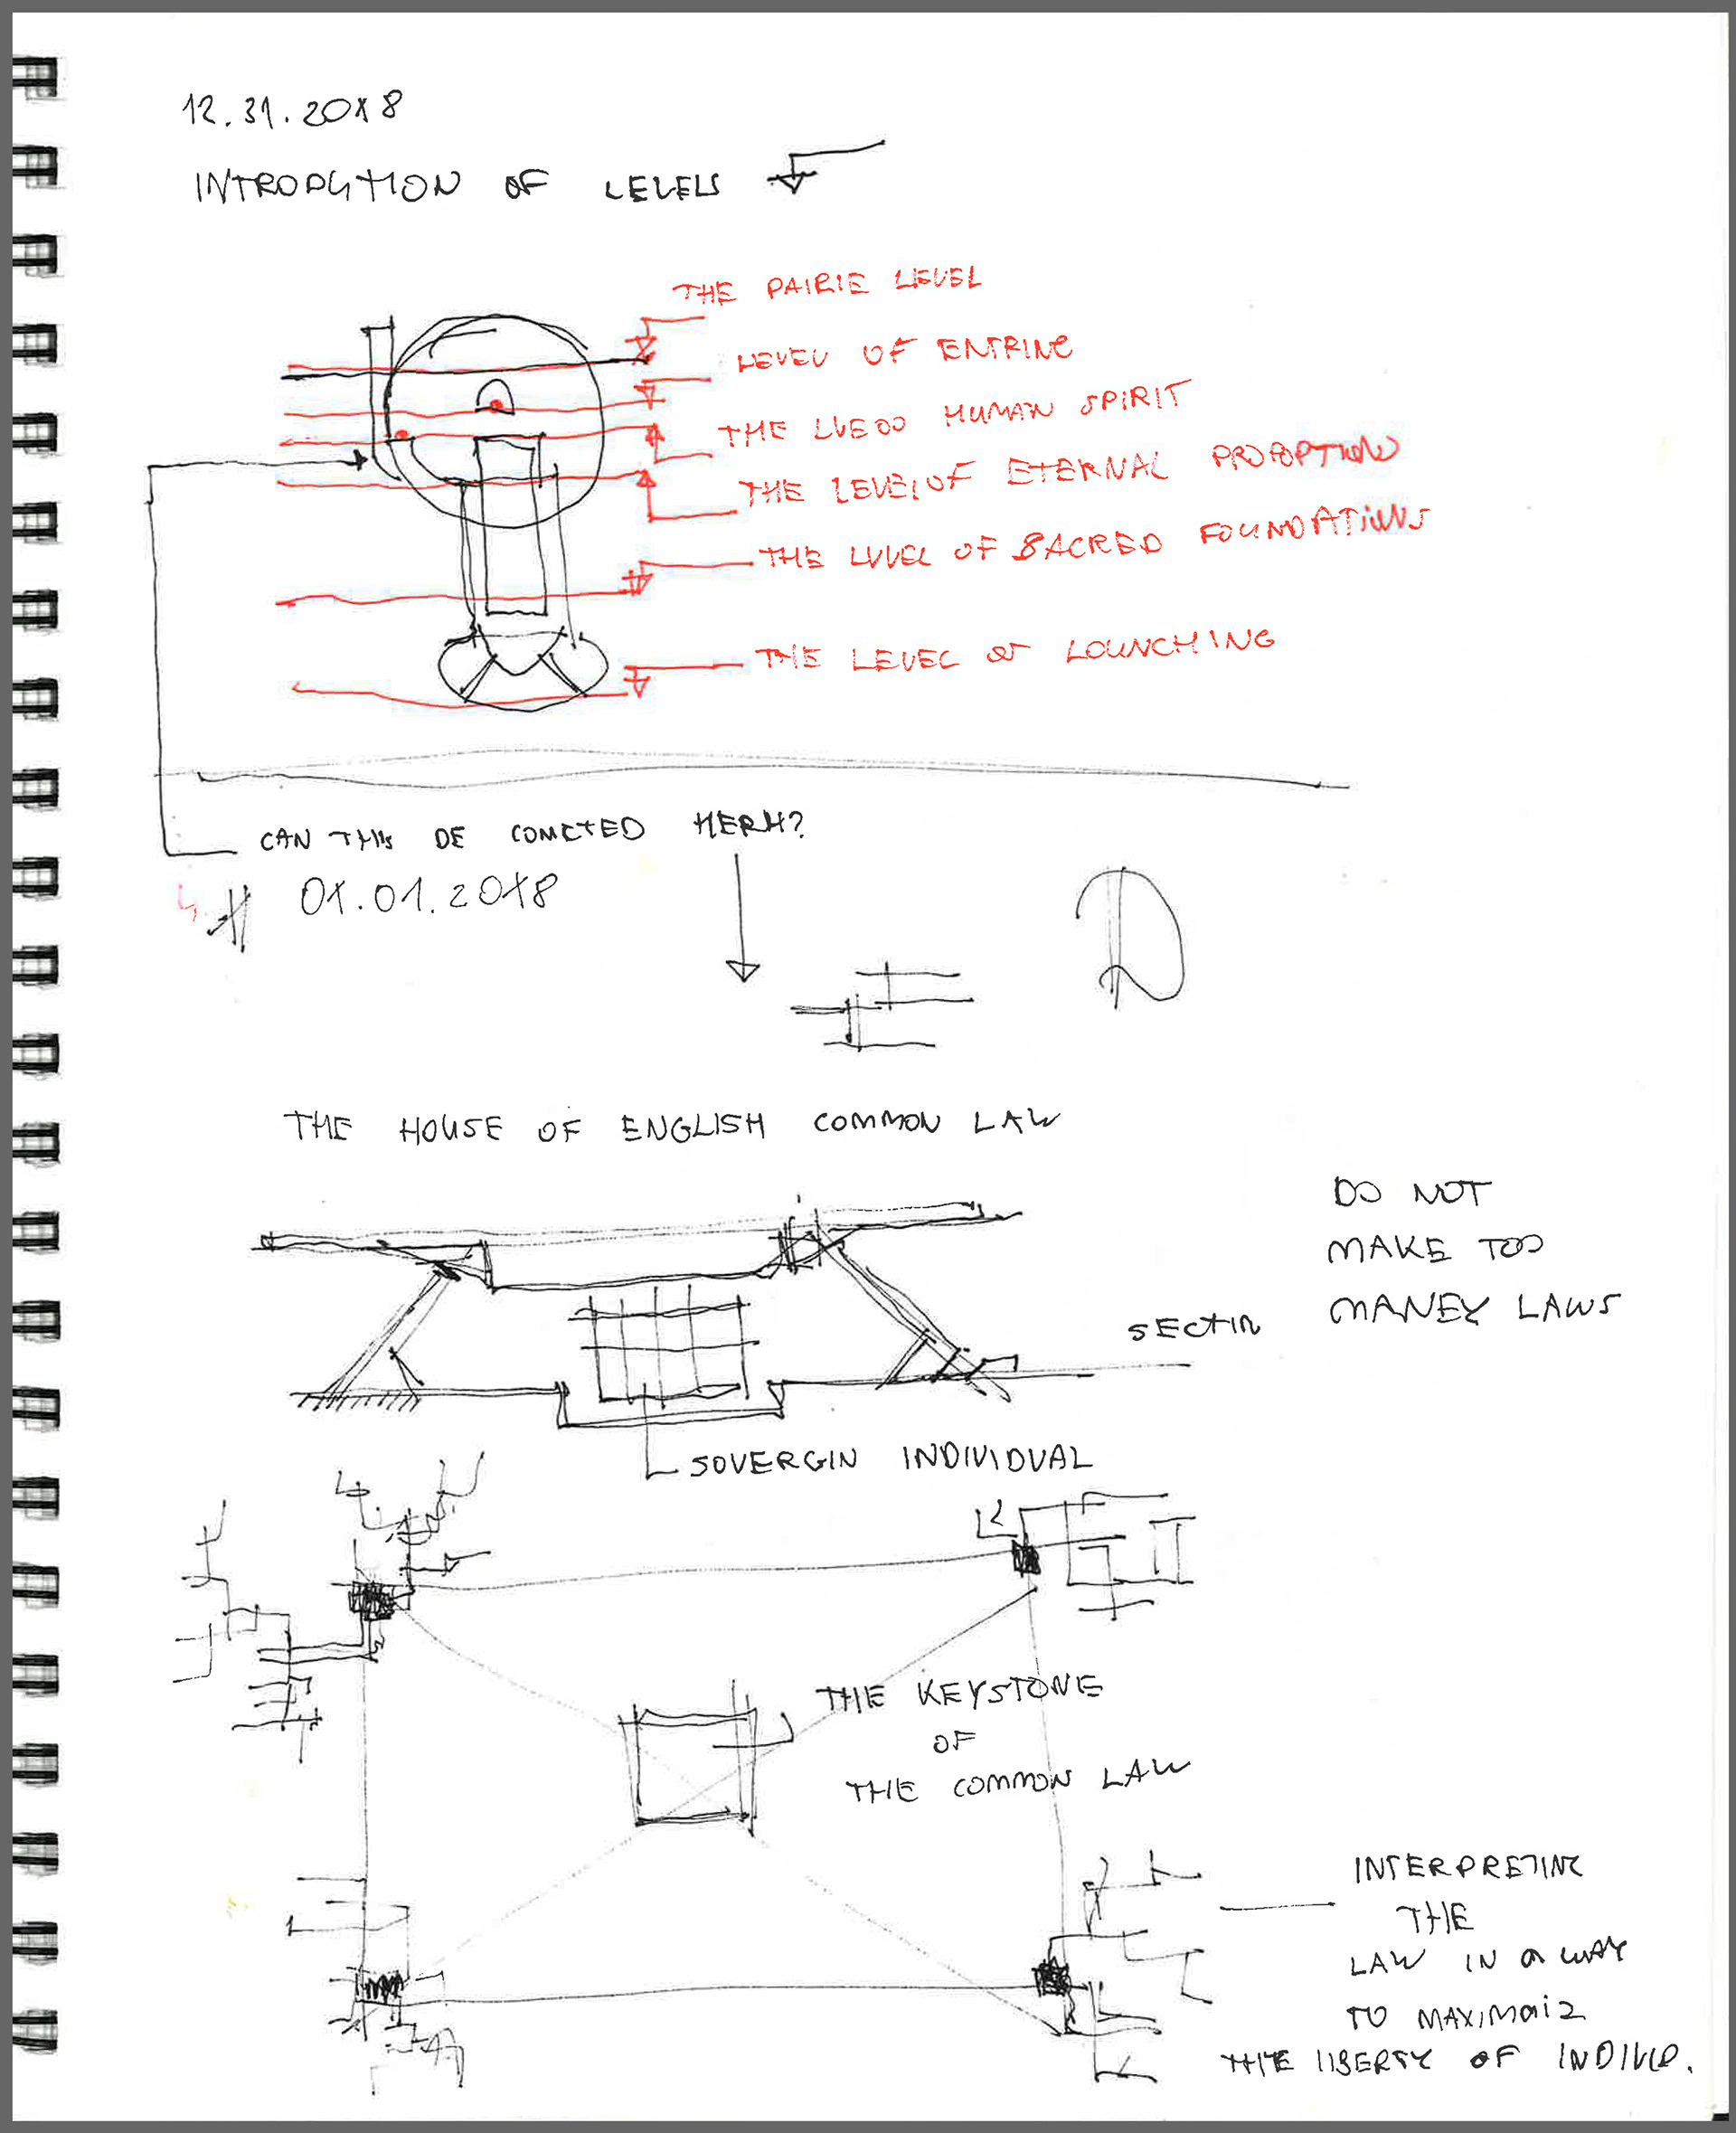 12.31.2018
INTRODUTION OF LEVELS
THE PAIRIE LEVEL
LEVEL OF ENTRINC
THE HUMAN SPIRIT
THE LEVEL OF ETERNAL PROPOPTION
THE LVVEL OF SACRED FOUNDATIONS
THE LEVEL OF LOUNCHING
CAN THIS BE COMCTED HERH?
01.01.2018
THE HOUSE OF ENGLISH COMMON LAW
DO NOT
MAKE TOO
MANEY LAWS
SECTIN
SOVERGIN INDIVIDUAL
THE KEYSTONE
OF
THE COMMON LAW
INTERPRETING
THE
LAW IN a WAY
TO MAXIMaiZ
THE LIBERTY OF INDIVID.